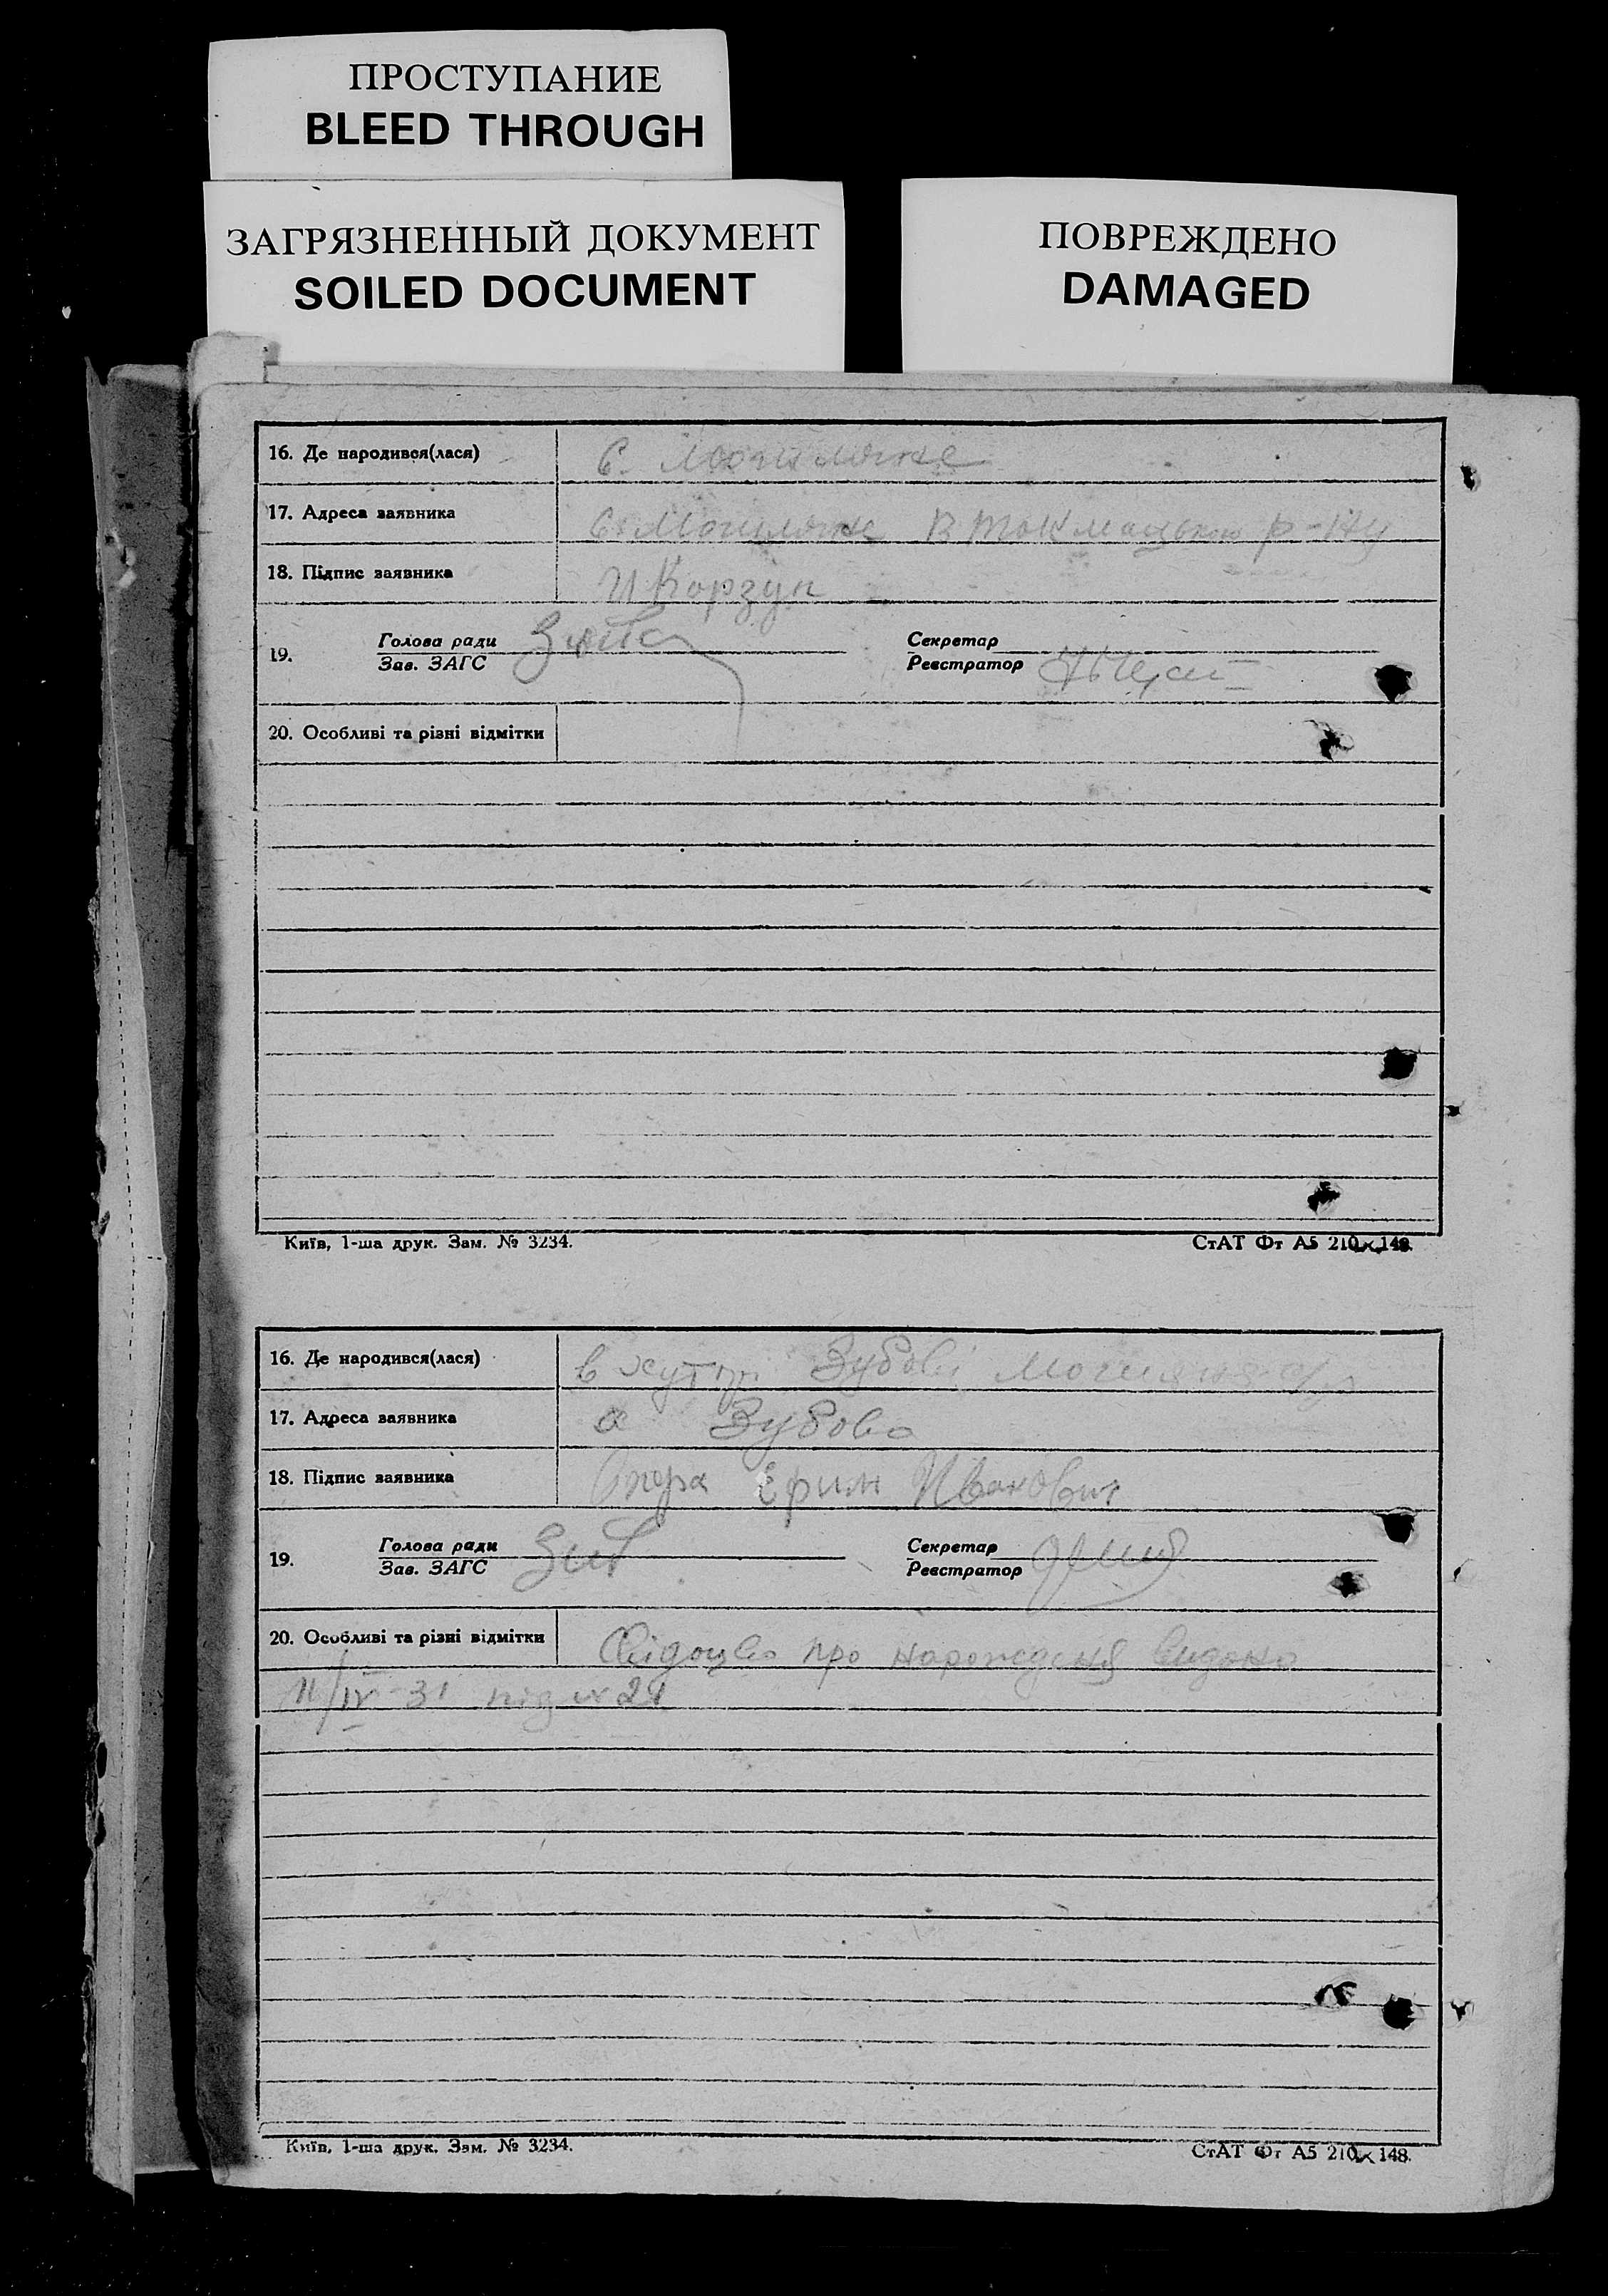 ПРОСТУПАНИЕ
BLEED THROUGH
ЗАГРЯЗНЕННЫЙ ДОКУМЕНТ
SOILED DOCUMENT
ПОВРЕЖДЕНО
DAMAGED
16. Де народився(лася) с.
17. Адреса заявника с. В Токмацького р-ну
18. Підпис заявника И Корзун
19. Голова ради Секретар
Зав. ЗАГС Реєстратор
20. Особливі та різні відмітки
Київ, 1-ша друк. Зам. № 3234. СтАТ Фт А5 210×148.
16. Де народився(лася) в хутрі Зубові
17. Адреса заявника х Зубово
18. Підпис заявника Ефим Иванович
19. Голова ради Секретар
Зав. ЗАГС Реєстратор
20. Особливі та різні відмітки про видано
11/IV-31 під № 21
Київ, 1-ша друк. Зам. № 3234. СтАТ Фт А5 210×148.